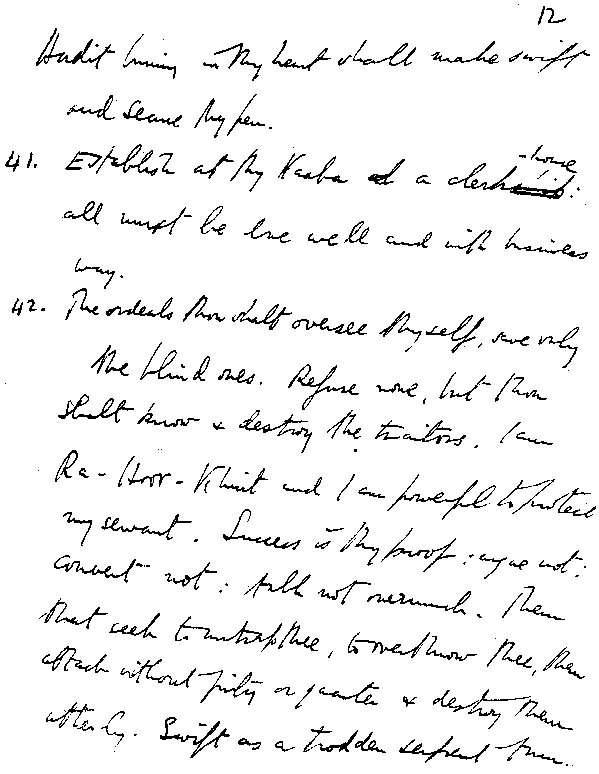 12
Hadit burning in thy heart shall make swift
and secure thy pen.
41. Establish at thy Kaaba a clerk-house:
all must be done well and with business
way.
42. The ordeals thou shalt oversee thyself, save only
the blind ones. Refuse none, but thou
shalt know & destroy the traitors. I am
Ra-Hoor-Khuit and I am powerful to protect
my servant. Success is thy proof: argue not:
convert not: talk not overmuch. Them
that seek to entrap thee, to overthrow thee, them
attack without pity or quarter & destroy them
utterly. Swift as a trodden serpent turn